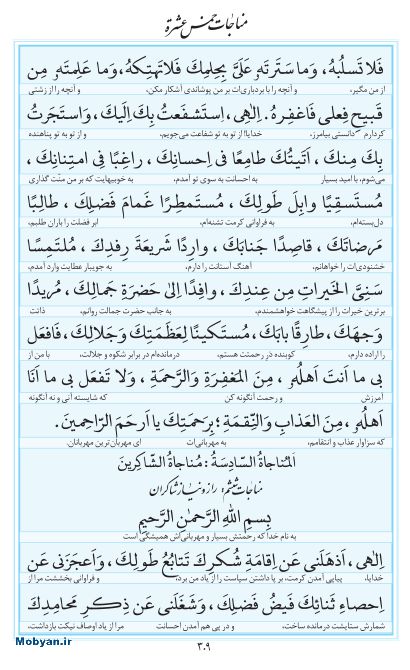 مناجات خمس عشرة
فَلا تَسلُبهُ، وَما سَتَرتَهُ عَلَیَّ بِحِلمِكَ فَلا تَهتِكهُ، وَما عَلِمتَهُ مِن
از من مگیر، و آنچه را با بردباری‌ات بر من پوشاندی آشکار مکن، و آنچه را از زشتی
قَبیحِ فِعلی فَاغفِرهُ. اِلٰهی، اِستَشفَعتُ بِكَ اِلَیكَ، وَاستَجَرتُ
کردارم دانستی بیامرز. خدایا! از تو به تو شفاعت می‌جویم، و از تو به تو پناهنده
بِكَ مِنكَ، اَتَیتُكَ طامِعًا فی اِحسانِكَ، راغِبًا فِی امتِنانِكَ،
می‌شوم، با امید بسیار به احسانت به سوی تو آمدم، به خوبیهایت که بر من منّت گذاری
مُستَسقِیًا وابِلَ طَولِكَ، مُستَمطِرًا غَمامَ فَضلِكَ، طالِبًا
دل‌بسته‌ام، به فراوانی کرمت تشنه‌ام، ابر فضلت را باران طلبم،
مَرضاتَكَ، قاصِدًا جَنابَكَ، وارِدًا شَریعَةَ رِفدِكَ، مُلتَمِسًا
خشنودی‌ات را خواهانم، آهنگ آستانت را دارم، به جویبار عطایت وارد آمدم،
سَنِیَّ الخَیراتِ مِن عِندِكَ، وافِدًا اِلیٰ حَضرَةِ جَمالِكَ، مُریدًا
برترین خیرات را از پیشگاهت خواهشمندم، به جانب حضرت جمالت روانم، ذاتت
وَجهَكَ، طارِقًا بابَكَ، مُستَكینًا لِعَظَمَتِكَ وَجَلالِكَ، فَافعَل
را اراده دارم، کوبنده در رحمتت هستم، درمانده‌ام در برابر شکوه و جلالت، با من از
بی ما اَنتَ اَهلُهُ، مِنَ المَغفِرَةِ وَالرَّحمَةِ، وَلا تَفعَل بی ما اَنَا
آمرزش و رحمت آنگونه کن که شایسته آنی و نه آنگونه
اَهلُهُ، مِنَ العَذابِ وَالنِّقمَةِ؛ بِرَحمَتِكَ یا اَرحَمَ الرّاحِمینَ.
که سزاوار عذاب و انتقامم، به مهربانی‌ات ای مهربان‌ترین مهربانان.
اَلمُناجاةُ السّادِسَةُ: مُناجاةُ الشّاكِرینَ
مناجات ششم: راز و نیاز شاکران
بِسمِ اللّٰهِ الرَّحمٰنِ الرَّحیمِ
به نام خدا که رحمتش بسیار و مهربانی‌اش همیشگی است
اِلٰهی، اَذهَلَنی عَن اِقامَةِ شُكرِكَ تَتابُعُ طَولِكَ، وَاَعجَزَنی عَن
خدایا، پیاپی آمدن کرمت، بر پا داشتن سپاست را از یاد من برد، و فراوانی بخششت مرا از
اِحصاءِ ثَنائِكَ فَیضُ فَضلِكَ، وَشَغَلَنی عَن ذِكرِ مَحامِدِكَ
شمارش ستایشت درمانده ساخت، و در پی هم آمدن احسانت مرا از یاد اوصاف نیکت بازداشت
۳۰۹
Mobyan.ir